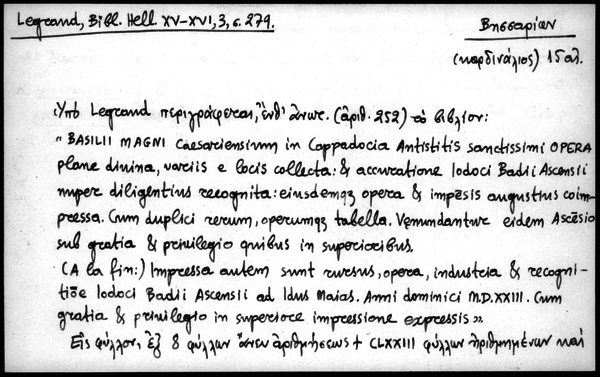 Legrand, Bibl. Hell XV-XVI, 3, σ. 279.
Βησσαρίων
(καρδινάλιος) 15 αι.
Ὑπὸ Legrand περιγράφεται, ἔνθ' ἀνωτ. (ἀριθ. 252) τὸ βιβλίον:
"BASILII MAGNI Caesariensium in Cappadocia Antistitis sanctissimi OPERA
plane diuina, variis e locis collecta: & accuratione Iodoci Badii Ascensii
nuper diligentius recognita: eiusdemqȝ opera & impēsis augustius coim-
pressa. Cum duplici rerum, operumqȝ tabella. Vęnundantur eidem Ascēsio
sub gratia & priuilegio quibus in superioribus.
(A la fin:) Impressa autem sunt rursus, opera, industria & recogni-
tiōe Iodoci Badii Ascensii ad Idus Maias. Anni dominici M.D.XXIII. Cum
gratia & priuilegio in superiore impressione expressis".
Εἰς φύλλον, ἐξ 8 φύλλων ἄνευ ἀριθμήσεως + CLXXIII φύλλων ἠριθμημένων καὶ